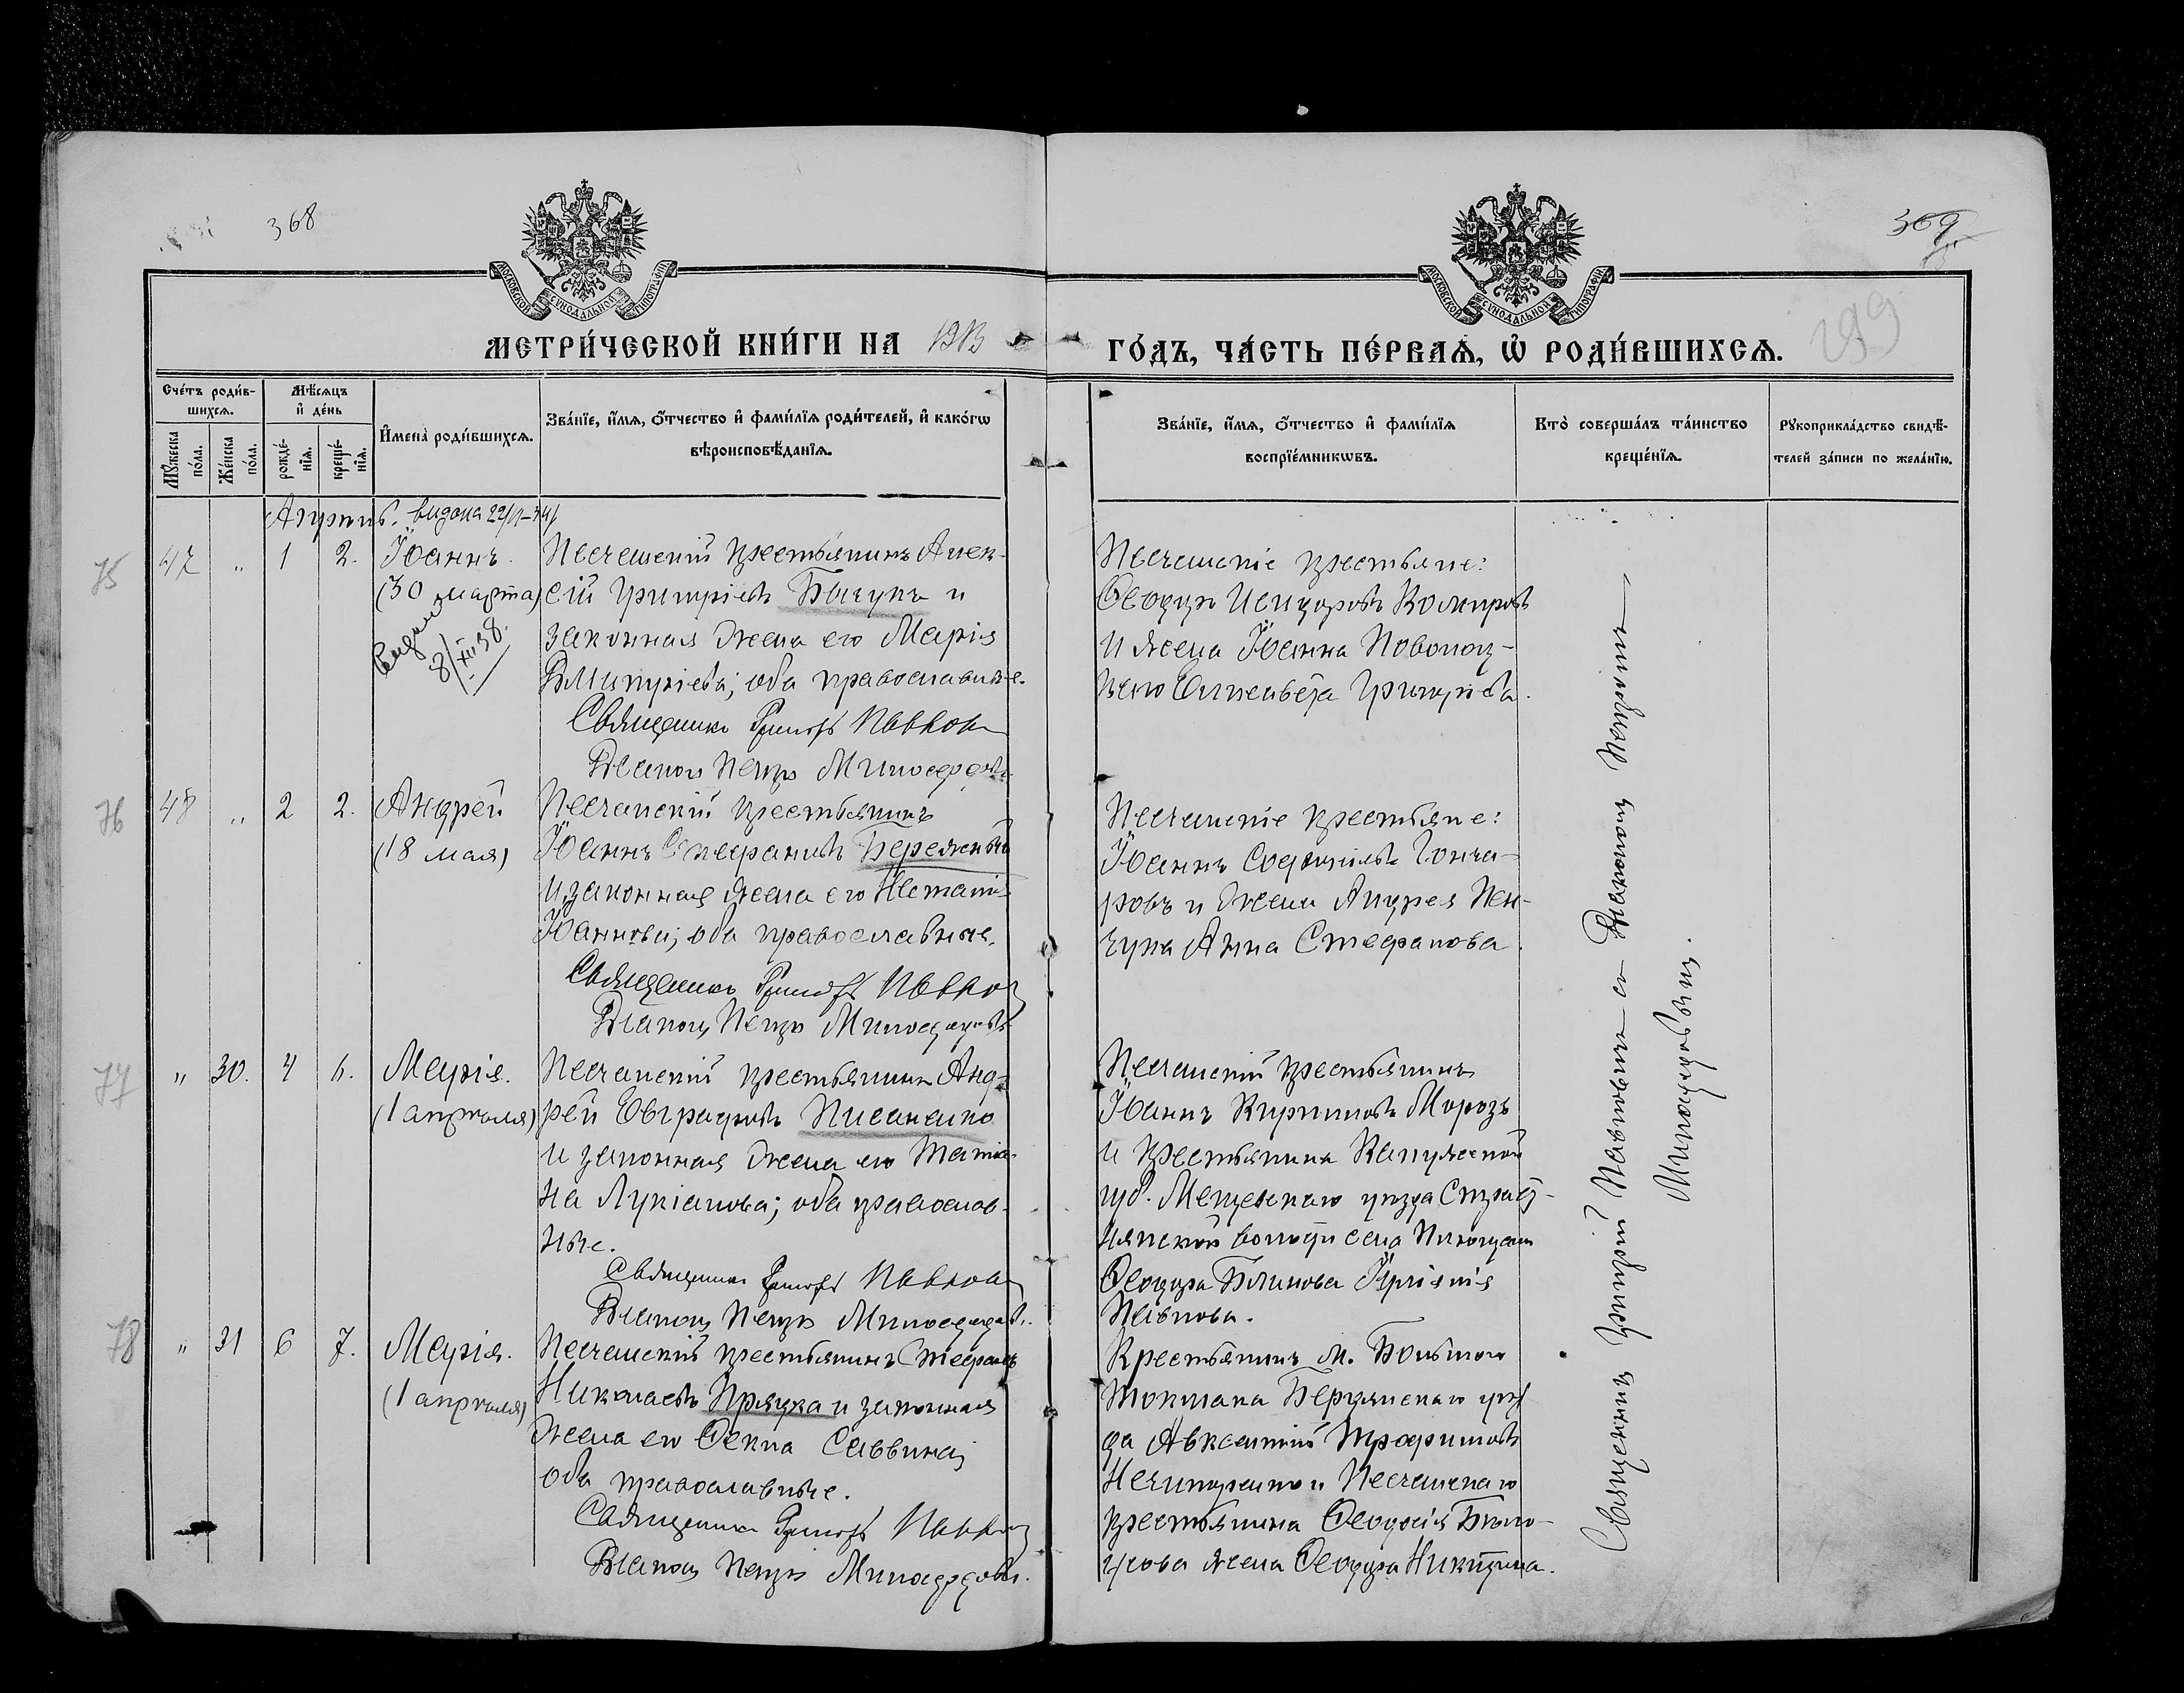 368
369
299
МОСКОВСКОЙ СѴНОДАЛЬНОЙ ТИПОГРАФІИ
МОСКОВСКОЙ СѴНОДАЛЬНОЙ ТИПОГРАФІИ
МЕТРИ́ЧЕСКОЙ КНИ́ГИ НА 1913
ГО́ДЪ, ЧА́СТЬ ПЕ́РВАѦ, Ѡ҆ РОДИ́ВШИХСѦ.
Сче́тъ роди́в-
шихсѧ.
Мꙋ́жеска по́ла.
Же́нска по́ла.
Мѣ́сѧцъ
и҆ де́нь
рожде́-
нїѧ.
креще́-
нїѧ.
И҆мена̀ роди́вшихсѧ.
Зва́нїе, и҆́мѧ, ѻ҆́тчество и҆ фами́лїѧ роди́телей, и҆ како́гѡ
вѣроисповѣ́данїѧ.
Зва́нїе, и҆́мѧ, ѻ҆́тчество и҆ фами́лїѧ
воспрїе́мникѡвъ.
Кто̀ соверша́лъ та́инство
креще́нїѧ.
Рꙋкоприкла́дство свидѣ́-
телей за́писи по жела́нїю.
Апрѣль. видана
75 47 " 1 2. Іоаннъ.
(30 марта)
Видано
8/XII 38.
Песчанскій крестьянинъ Алек-
сій Григоріевъ Бычукъ и
законная жена его Марія
Дмитріева; оба православные.
Священникъ Григорій Павлов
Діаконъ Петръ Милосердовъ
Песчанскіе крестьяне:
Ѳеодоръ Исидоровъ Комировъ
и жена Іоанна Новопол-
Елисавета Григорьева.
76 48 " 2 2. Андрей
(18 мая)
Песчанскій крестьянинъ
Іоаннъ Стефановъ Бережный
и законная жена его Наталія
Іоаннова; оба православные.
Священникъ Григорій Павлов
Діаконъ Петръ Милосердовъ
Песчанскіе крестьяне:
Іоаннъ Гонча-
ровъ и жена Андрея Пен-
чука Анна Стефанова.
77 " 30. 4 6. Марія.
(1 апрѣля)
Песчанскій крестьянинъ Анд-
рей Евграфовъ Писаненко
и законная жена его Татіа-
на Лукіанова; оба православ-
ные.
Священникъ Григорій Павлов
Діаконъ Петръ Милосердовъ.
Песчанскій крестьянинъ
Іоаннъ Кирилловъ Морозъ
и крестьянина Калужской
губ. Мещевскаго уѣзда
волости села
Ѳеодора Блинова
Павлова.
78 " 31 6 7. Марія.
(1 апрѣля)
Песчанскій крестьянинъ Стефанъ
Николаевъ Прядка и законная
жена его Ѳекла Саввина;
оба православные.
Священникъ Григорій Павлов
Діаконъ Петръ Милосердовъ.
Крестьянинъ м. Большого
Токмака Бердянскаго уѣз-
да Авксентій Трофимовъ
Нечипоренко и Песчанскаго
крестьянина Ѳеодосія Бѣло-
усова жена Ѳеодора Никитина.
Священникъ Григорій Павловичъ съ Діакономъ Петромъ
Милосердовымъ.